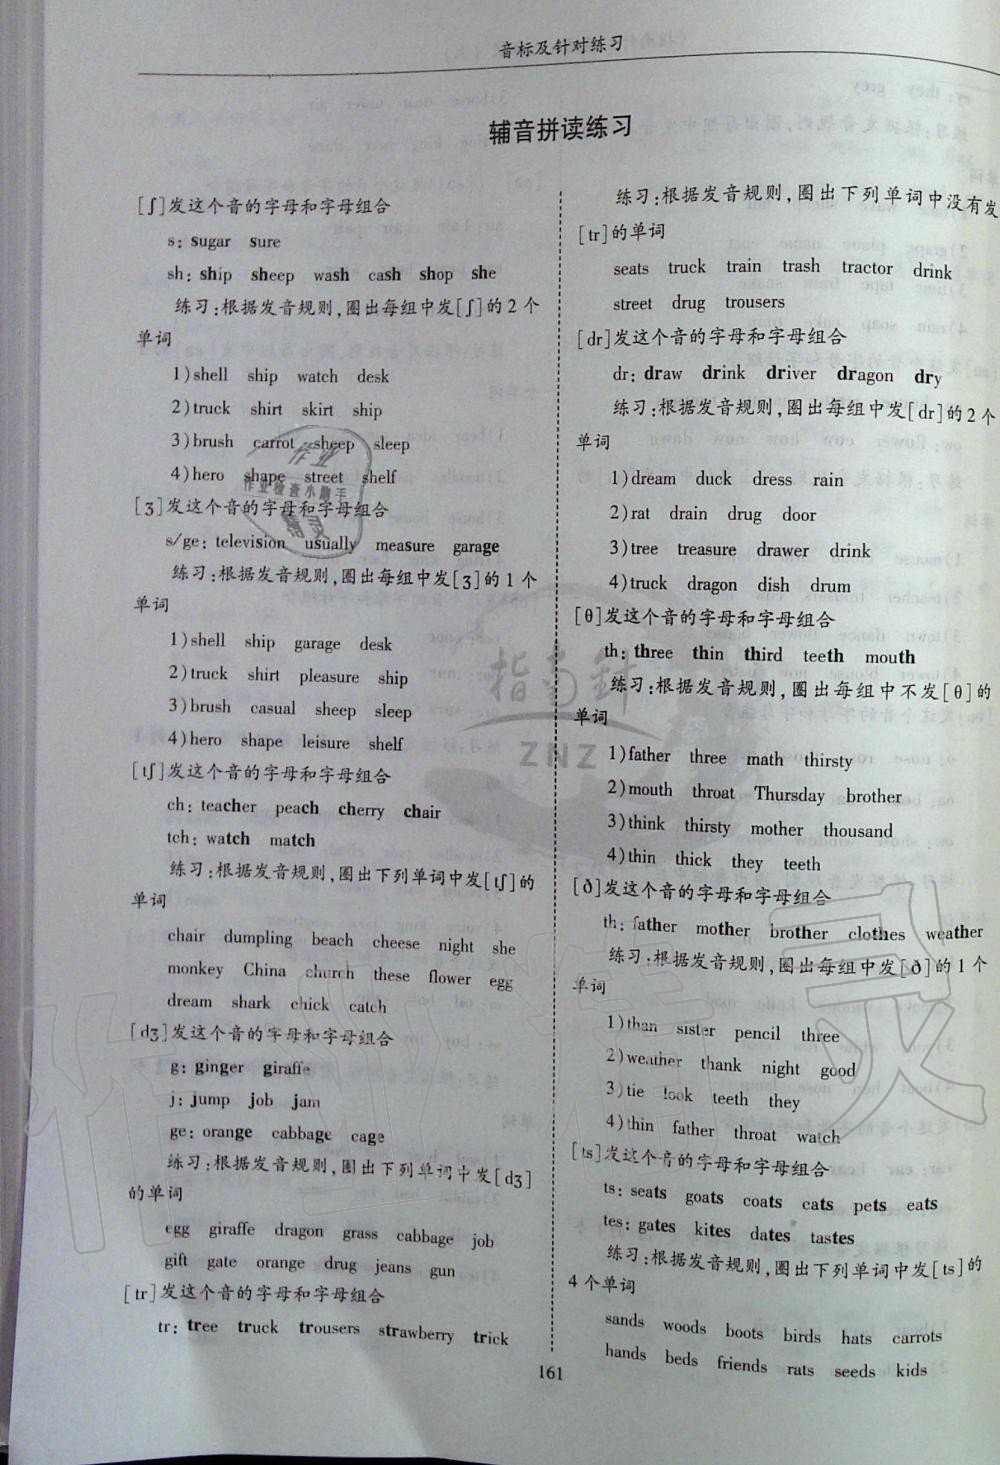 音标及针对练习
辅音拼读练习
[ʃ]发这个音的字母和字母组合
s: sugar sure
sh: ship sheep wash cash shop she
练习:根据发音规则,圈出每组中发[ʃ]的2个
单词
1)shell ship watch desk
2)truck shirt skirt ship
3)brush carrot sheep sleep
4)hero shape street shelf
[ʒ]发这个音的字母和字母组合
s/ge: television usually measure garage
练习:根据发音规则,圈出每组中发[ʒ]的1个
单词
1)shell ship garage desk
2)truck shirt pleasure ship
3)brush casual sheep sleep
4)hero shape leisure shelf
[tʃ]发这个音的字母和字母组合
ch: teacher peach cherry chair
tch: watch match
练习:根据发音规则,圈出下列单词中发[tʃ]的
单词
chair dumpling beach cheese night she
monkey China church these flower egg
dream shark chick catch
[dʒ]发这个音的字母和字母组合
g: ginger giraffe
j: jump job jam
ge: orange cabbage cage
练习:根据发音规则,圈出下列单词中发[dʒ]
的单词
egg giraffe dragon grass cabbage job
gift gate orange drug jeans gun
[tr]发这个音的字母和字母组合
tr: tree truck trousers strawberry trick
练习:根据发音规则,圈出下列单词中没有发
[tr]的单词
seats truck train trash tractor drink
street drug trousers
[dr]发这个音的字母和字母组合
dr: draw drink driver dragon dry
练习:根据发音规则,圈出每组中发[dr]的2个
单词
1)dream duck dress rain
2)rat drain drug door
3)tree treasure drawer drink
4)truck dragon dish drum
[θ]发这个音的字母和字母组合
th: three thin third teeth mouth
练习:根据发音规则,圈出每组中不发[θ]的
单词
1)father three math thirsty
2)mouth throat Thursday brother
3)think thirsty mother thousand
4)thin thick they teeth
[ð]发这个音的字母和字母组合
th: father mother brother clothes weather
练习:根据发音规则,圈出每组中发[ð]的1个
单词
1)than sister pencil three
2)weather thank night good
3)tie look teeth they
4)thin father throat watch
[ts]发这个音的字母和字母组合
ts: seats goats coats cats pets eats
tes: gates kites dates tastes
练习:根据发音规则,圈出下列单词中发[ts]的
4个单词
sands woods boots birds hats carrots
hands beds friends rats seeds kids
161
作业
作业检查小助手
精灵
指南针
ZNZ
作业精灵